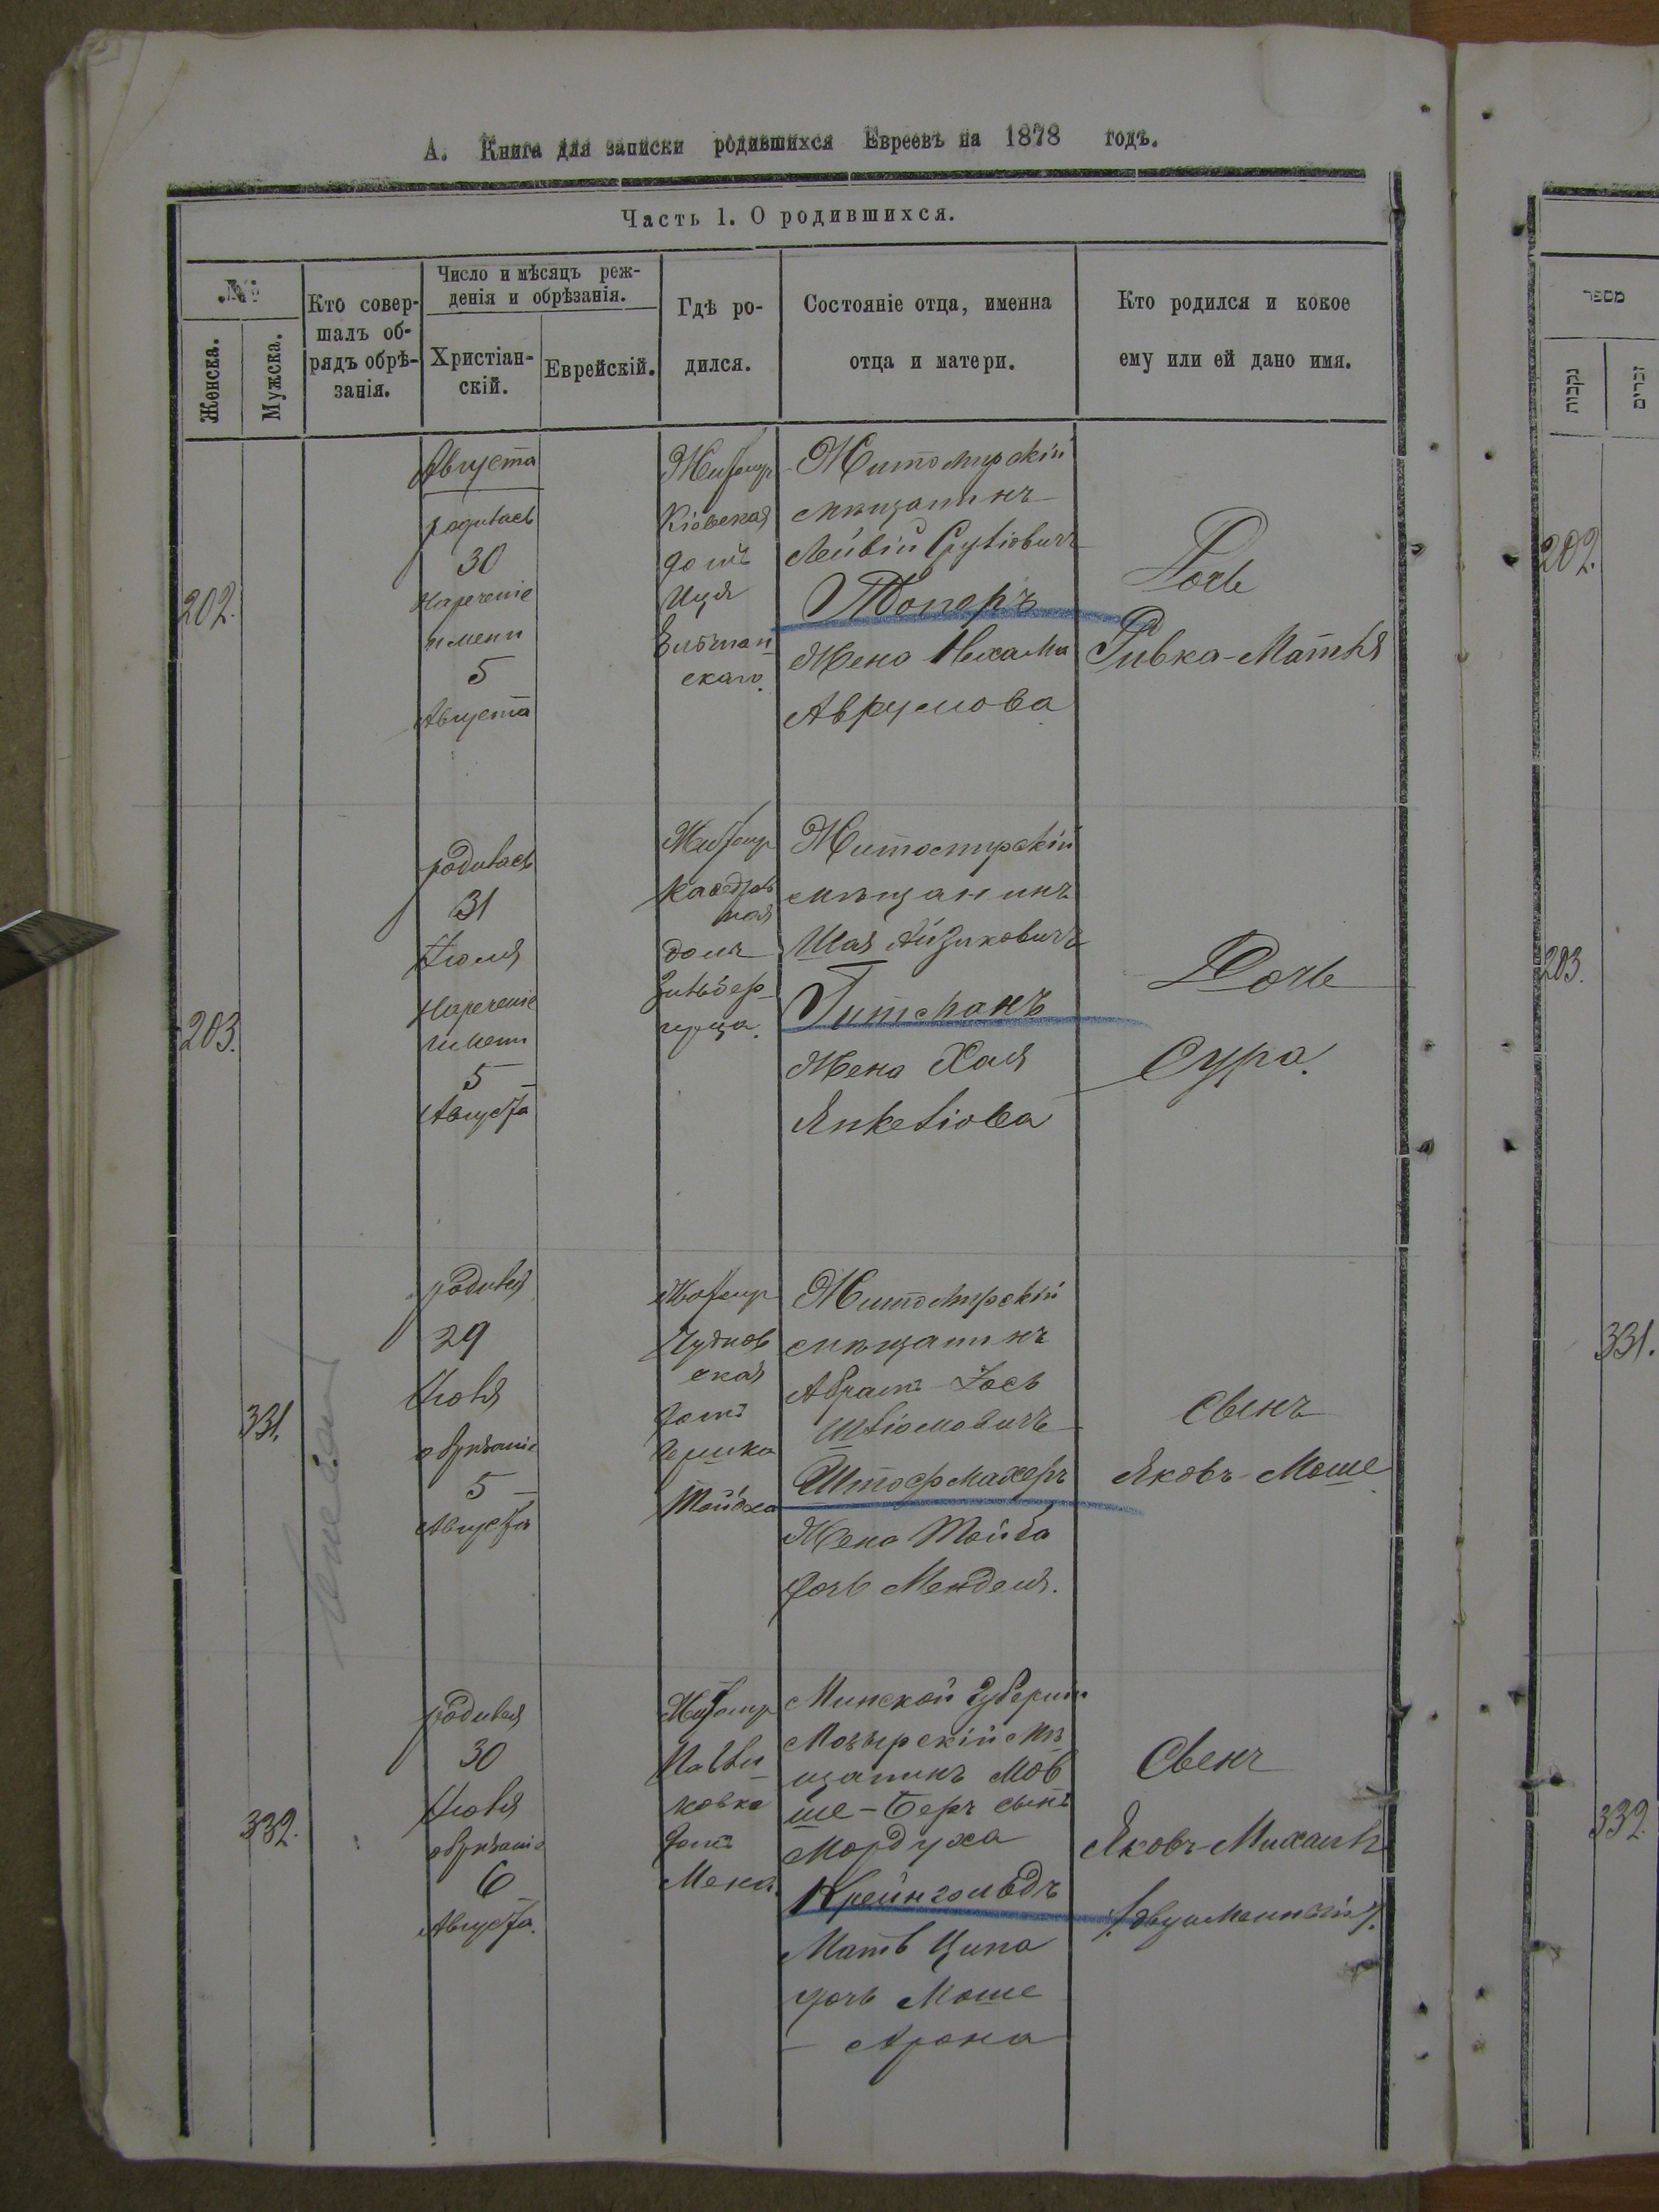 А. Книга для записки родившихся Евреевъ на 1878 годъ.
Часть 1. О родившихся.
№
Женска.
Мужска.
Кто совер-
шалъ об-
рядъ обрѣ-
занія.
Число и мѣсяцъ реж-
денія и обрѣзанія.
Христіан-
скій.
Еврейскій.
Гдѣ ро-
дился.
Состояніе отца, именна
отца и матери.
Кто родился и кокое
ему или ей дано имя.
202.
Августа
родилась
30
Нареченіе
имени
5
Августа
Житомир
Кіевская
домъ
Иця
Житомирскій
мѣщанинъ
Лейвій Срулiовичъ
Топоръ
Жена Нехама
Аврумова
Дочь
Ривка-Матля
203.
родилась
31
Іюля
Нареченіе
имени
5
Августа
Житомир
Кафедраль
ная
домъ
Зильбер-
Житомирскій
мѣщанинъ
Шая Айзиковичъ
Гитманъ
Жена Хая
Янкеліова
Дочь
Сура.
331.
родился
29
Іюля
обрѣзаніе
5
Августа
Житомир
Чуднов
ская
домъ
Гершка
Житомирскій
мѣщанинъ
Абрамъ-Іось
Шліомовичъ
Штофмахеръ
Жена Тойба
дочь Менделя.
Сынъ
Яковъ-Моше
332.
родился
30
Іюля
обрѣзаніе
6
Августа.
Житомир
Мальи
ковка
домъ
Минской Губерніи
Мозырскій мѣ
щанинъ Мов
ше-Беръ сынъ
Мордуха
Крейнгольдъ
Мать Ципа
дочь Моше
Арона
Сынъ
Яковъ-Михаилъ
/:двуименный:/.
מספר
נקבות
זכרים
202.
203.
331.
332